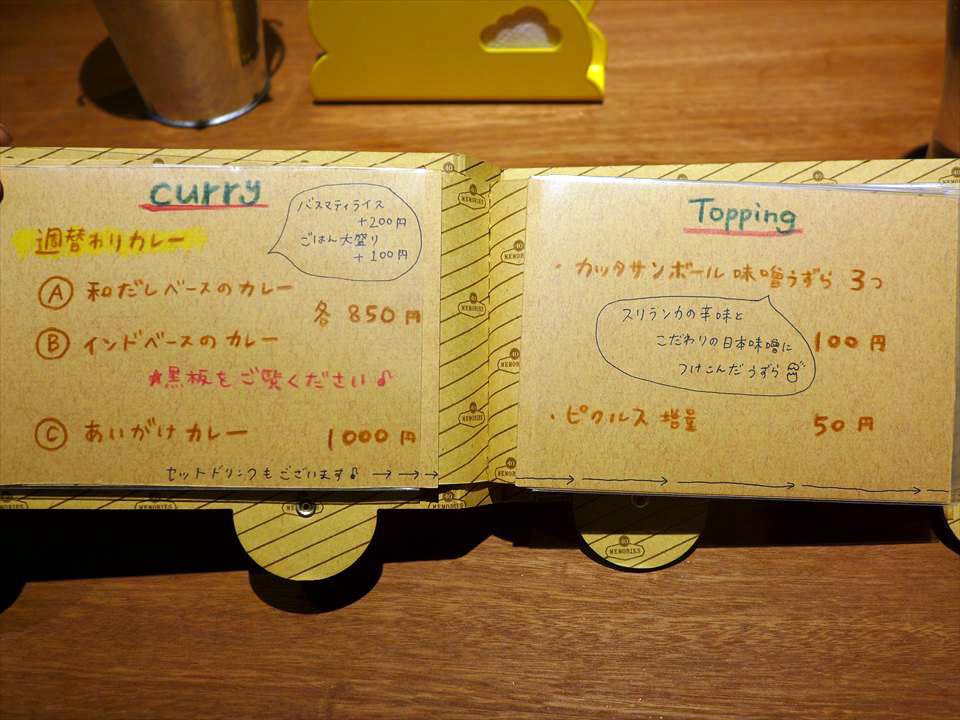 curry
バスマティライス
+200円
ごはん大盛り
+100円
週替わりカレー
Ⓐ 和だしベースのカレー
各 850円
Ⓑ インドベースのカレー
★黒板をご覧ください♪
Ⓒ あいがけカレー 1000円
セットドリンクもございます♪ →→→
Topping
・カッタサンボール味噌うずら 3つ
スリランカの辛味と
こだわりの日本味噌に
つけこんだうずら
100円
・ピクルス 増量 50円
MEMORIES
MEMORIES
MEMORIES
MEMORIES
MEMORIES
MEMORIES
MEMORIES